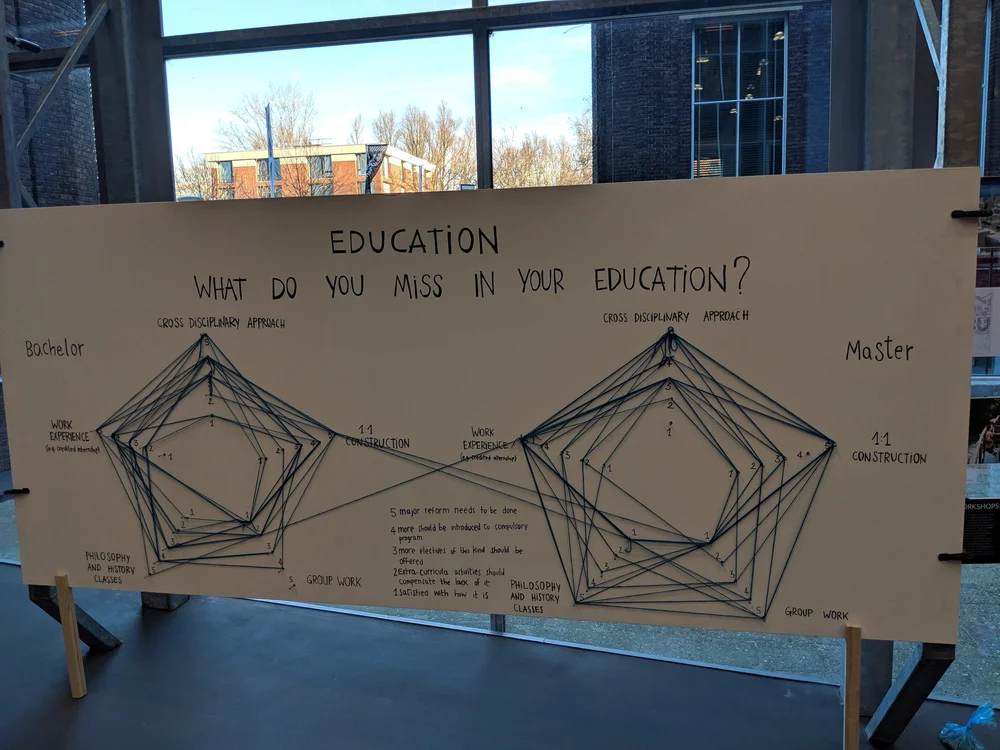 EDUCATION
WHAT DO YOU MISS IN YOUR EDUCATION?
Bachelor
CROSS DISCIPLINARY APPROACH
WORK
EXPERIENCE
(e.g. credited internship)
1:1
CONSTRUCTION
PHILOSOPHY
AND HISTORY
CLASSES
GROUP WORK
5 major reform needs to be done
4 more should be introduced to compulsory
program
3 more electives of this kind should be
offered
2 Extra-curricula activities should
compensate the lack of it
1 satisfied with how it is
Master
CROSS DISCIPLINARY APPROACH
WORK
EXPERIENCE
(e.g. credited internship)
1:1
CONSTRUCTION
PHILOSOPHY
AND HISTORY
CLASSES
GROUP WORK
ORKSHOPS